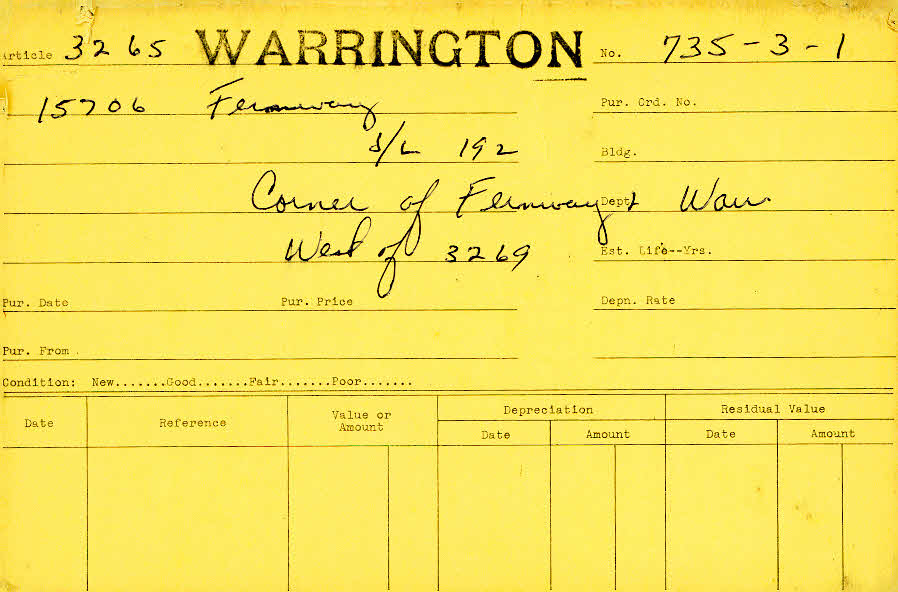 Article 3265 WARRINGTON No. 735-3-1
15706 Fernway Pur. Ord. No.
S/L 192 Bldg.
Corner of Fernway & Warr. Dept.
West of 3269 Est. Life--Yrs.
Pur. Date Pur. Price Depn. Rate
Pur. From
Condition: New.......Good.......Fair.......Poor.......
Date Reference Value or Amount Depreciation Residual Value
Date Amount Date Amount